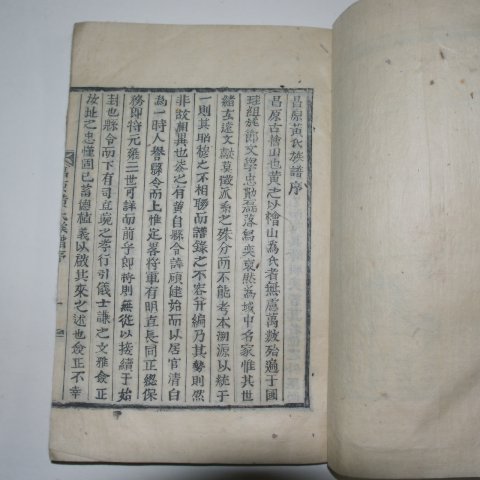 昌原黃氏族譜序
昌原古檜山也黃之以檜山爲氏者無慮萬數殆遍于國
珪組旄節文學忠勳磊落焉奕裒然爲域中名家惟其世
緖玄遠文獻莫徵派系之殊分而不能考本溯源以統于
一則其昭穆之不相聯而譜錄之不容幷編乃其勢則然
非故相異也峇之有黃自縣令諱頔建始而以居官淸白
爲一時人譽縣令而上惟定畧將軍有明直長同正總保
務卽將元雍三世可詳而前乎卽將則無從以接續于始
封也縣令而下有司立琬之孝行引儀士謙之文雅僉正
汝址之忠懂固已蓄德植義以啟其來之述也僉正不幸
昌原黃氏族譜序 一